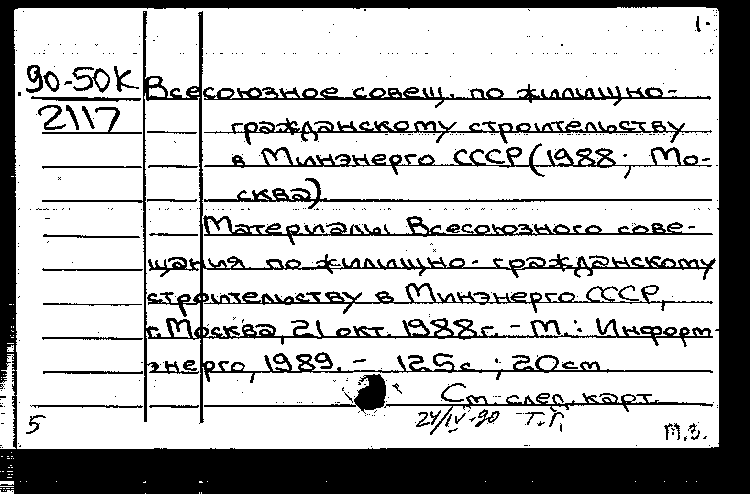 1.
90-50К Всесоюзное совещ. по жилищно-
2117 гражданскому строительству
в Минэнерго СССР (1988; Мо-
сква)
Материалы Всесоюзного сове-
щания по жилищно-гражданскому
строительству в Минэнерго СССР,
г. Москва, 21 окт. 1988г. - М.: Информ-
энерго, 1989. - 125с.; 20см
См. след. карт.
5 24/IV-90 Т.П.
М.З.